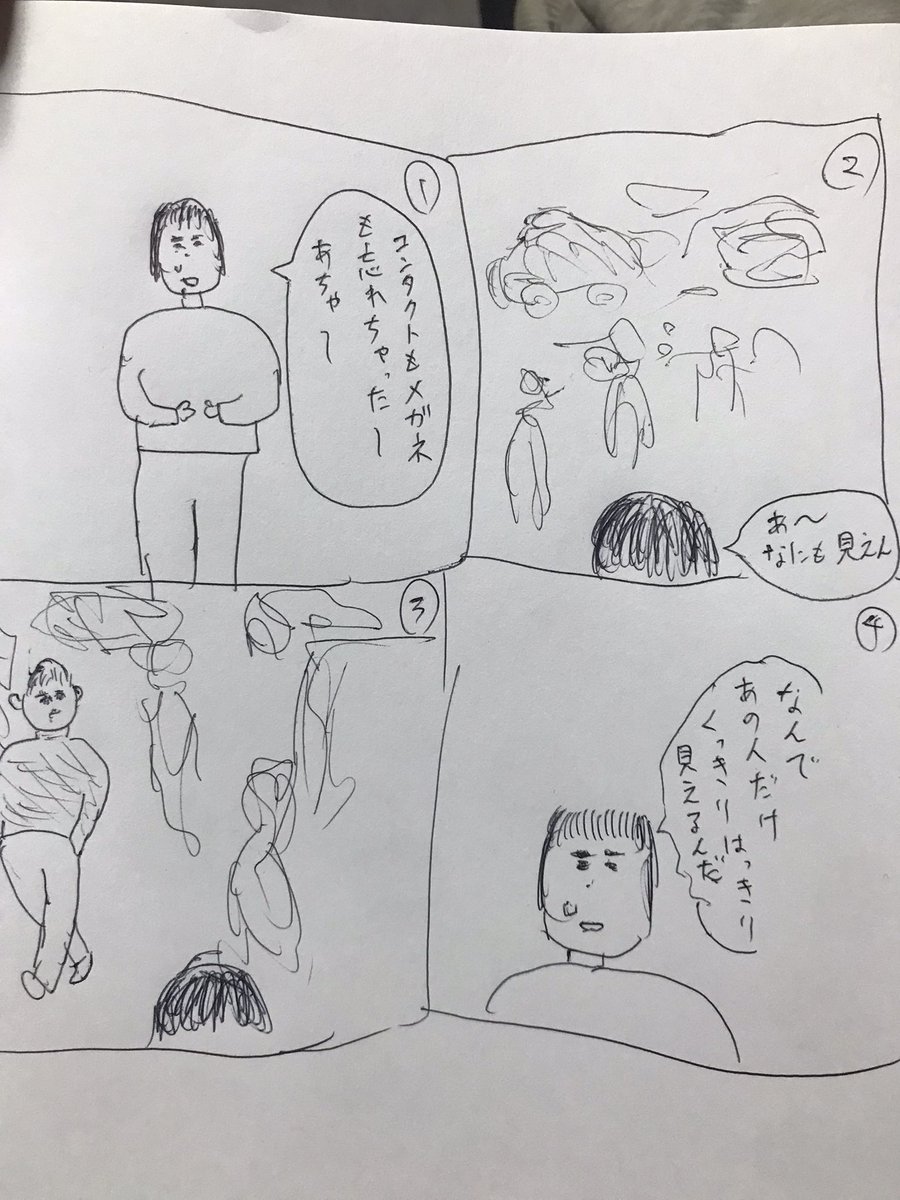 1
コンタクトもメガネ
も忘れちゃったー
あちゃー
2
あ〜
なにも見えん
3
4
なんで
あの人だけ
くっきりはっきり
見えるんだ